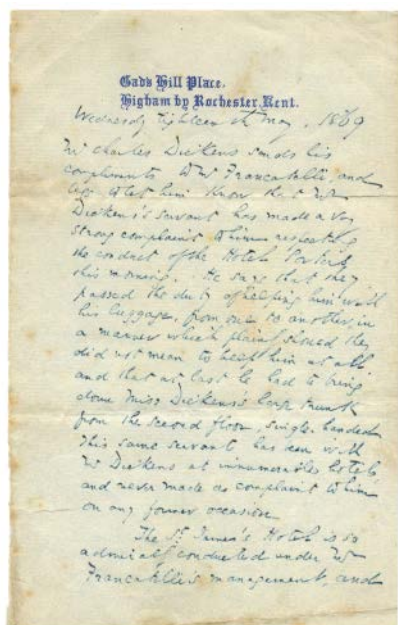 Gad's Hill Place,
Higham by Rochester, Kent.
Wednesday Eighteenth May, 1869
Mr Charles Dickens sends his
compliments to Mr Francatelli, and
begs to let him know that Mr
Dickens's servant has made a very
strong complaint to him respecting
the conduct of the Hotel Porters
this morning. He says that they
passed the duty of helping him with
his luggage, from one to another, in
a manner which plainly showed they
did not mean to help him at all,
and that at last he had to bring
down Miss Dickens's large trunk
from the second floor, single-handed.
This same servant has been with
Mr Dickens at innumerable hotels,
and never made a complaint to him
on any former occasion.
The St. James's Hotel is so
admirably conducted under Mr
Francatelli's management, and